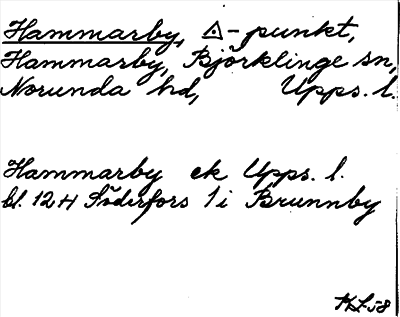 Hammarby, △-punkt,
Hammarby, Björklinge sn,
Norunda hd, Upps. l.
Hammarby ek Upps. l.
bl. 12H Söderfors 1i Brunnby